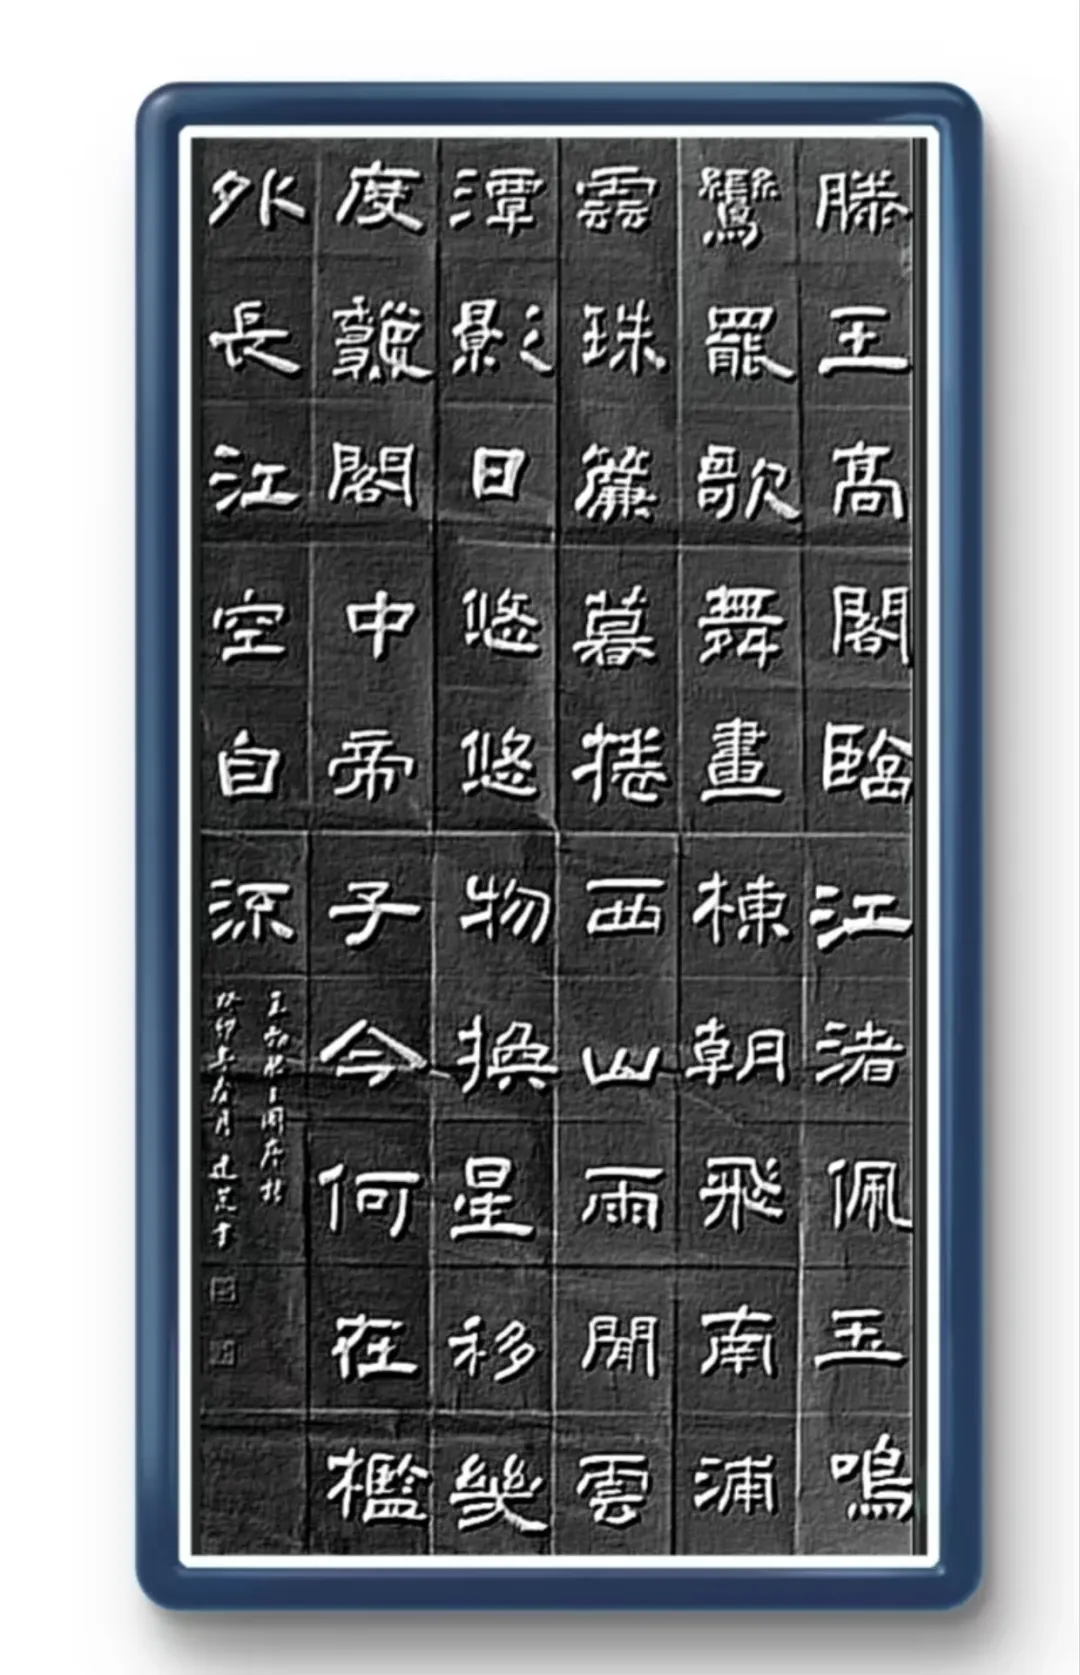 滕王高閣臨江渚佩玉鳴
鸞罷歌舞畫棟朝飛南浦
雲珠簾暮捲西山雨閒雲
潭影日悠悠物換星移幾
度龝閣中帝子今何在檻
外長江空自流
王勃滕王閣序
癸卯年春月建